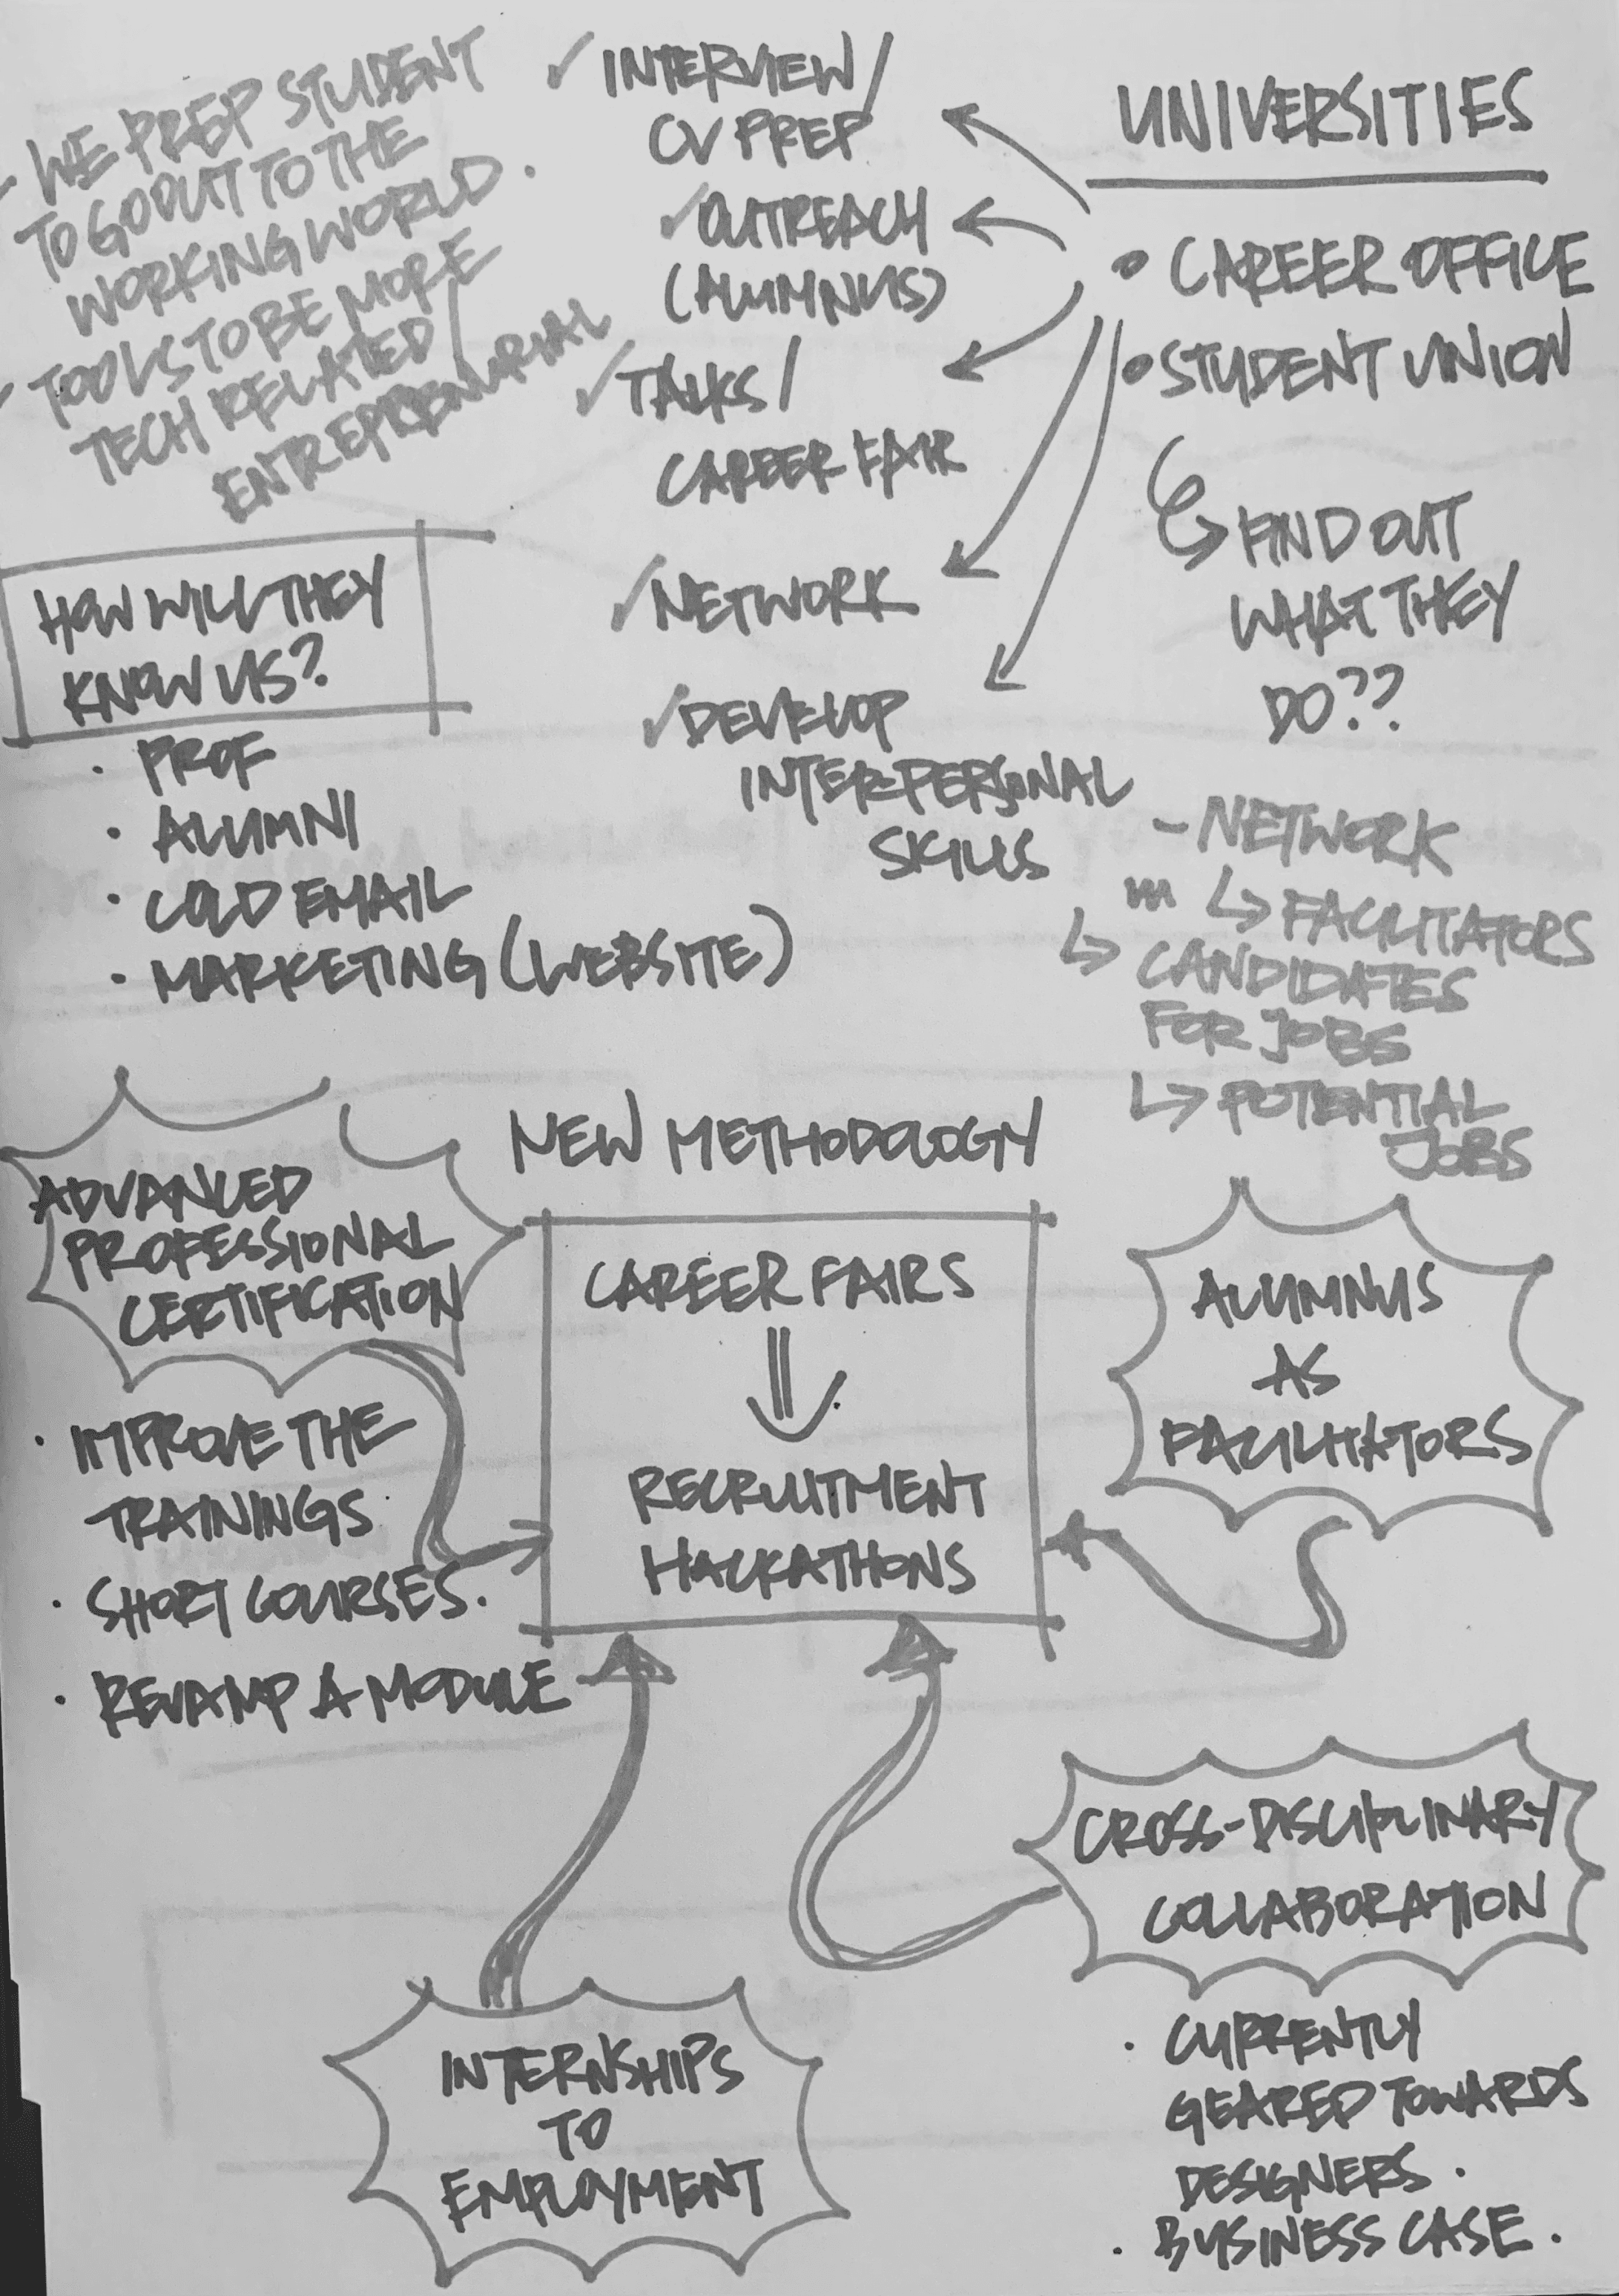 - WE PREP STUDENT
TO GO OUT TO THE
WORKING WORLD.
- TOOLS TO BE MORE
TECH RELATED/
ENTREPRENURIAL
✓ INTERVIEW/
CV PREP
✓ OUTREACH
(ALUMNUS)
✓ TALKS/
CAREER FAIR
✓ NETWORK
✓ DEVELOP
INTERPERSONAL
SKILLS
UNIVERSITIES
• CAREER OFFICE
• STUDENT UNION
↳ FIND OUT
WHAT THEY
DO??
- NETWORK
↳ FACILITATORS
↳ CANDIDATES
FOR JOBS
↳ POTENTIAL
JOBS
HOW WILL THEY
KNOW US?
• PROF
• ALUMNI
• COLD EMAIL
• MARKETING (WEBSITE)
NEW METHODOLOGY
CAREER FAIRS
↓
RECRUITMENT
HACKATHONS
ADVANCED
PROFESSIONAL
CERTIFICATION
• IMPROVE THE
TRAININGS.
• SHORT COURSES.
• REVAMP A MODULE
ALUMNUS
AS
FACILITATORS
CROSS-DISCIPLINARY
COLLABORATION
• CURRENTLY
GEARED TOWARDS
DESIGNERS.
• BUSINESS CASE.
INTERNSHIPS
TO
EMPLOYMENT